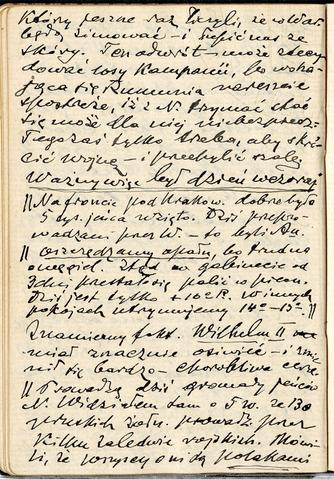 Który jeszcze raz , że
będą zimować – i nas ze
skóry. Ten odwrót – może zdecy-
dować losy Kampanii, bo waha-
jąca się Rumunia nareszcie
spostrzeże, iż z N. trzymać
się może dla niej niebezpiecz.
Tego zaś tylko trzeba, aby skró-
cić wojnę – i przechylić szalę
Ważnym więc był dzień wczoraj
|| Na froncie pod Krakow. dobre było
5 tys. jeńca wzięto. Dziś przepro-
wadzani przez W. – to byli Au.
|| oszczędzamy opału, bo trudno
o węgiel. Stąd w gabinecie od
3 dni przestałem palić w piecu.
Dziś jest tylko + 10° R. W innych
pokojach utrzymujemy 14° – 13° ||
Znamienny fakt. Wilhelm II
miał znacznie osiwieć – i zmie-
nił się bardzo – chorobliwa cera
|| Prowadzą dziś gromady jeńców
N. Widziałem sam o 5 w. ze 130
pruskich żołn. prowadz. przez
kilku zaledwie rosyjskich. Mówi-
li, że wszyscy oni są polakami